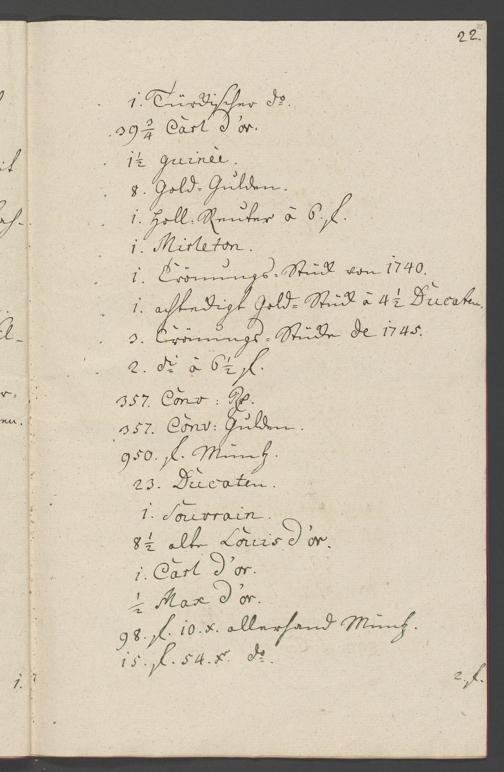 22.
1. Türckischer do.
39 3/4 Carl d'or.
1 1/2 guinée.
8. Gold-Gulden.
1. Holl: Reuter à 6. fl.
1. Mirleton.
1. Crönungs-Stück von 1740.
1. achteckigt Gold-Stück à 4 1/2 Ducaten.
3. Crönungs-Stücke de 1745.
2. do. à 6 1/2 fl.
357. Conv:
357. Conv: Gulden.
950. fl. Müntz.
23. Ducaten.
1. Souvrain.
8 1/2 alte Louis d'or.
1. Carl d'or.
1/2 Max d'or.
98. fl. 10. x. allerhand Müntz.
15. fl. 54. x. do.
2. fl.